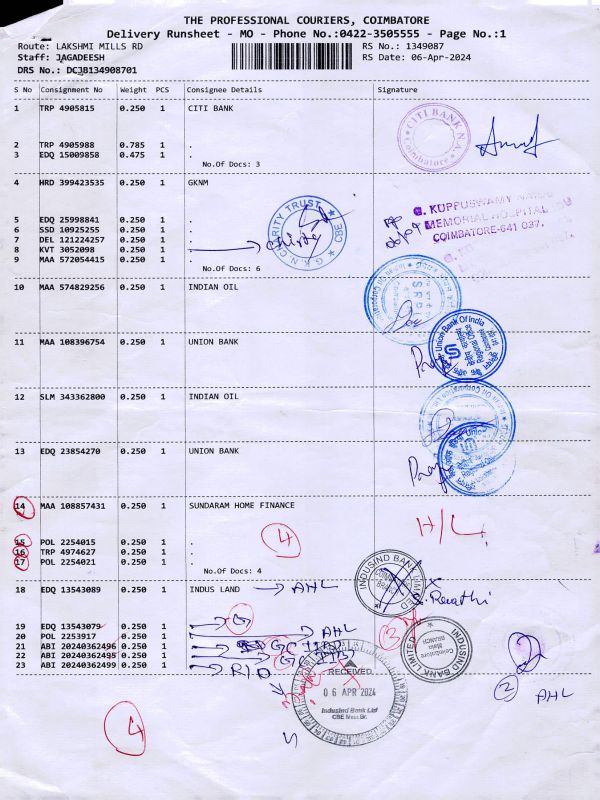 THE PROFESSIONAL COURIERS, COIMBATORE
Delivery Runsheet - MO - Phone No.:0422-3505555 - Page No.:1
Route: LAKSHMI MILLS RD RS No.: 1349087
Staff: JAGADEESH RS Date: 06-Apr-2024
DRS No.: DCJB134908701
S No Consignment No Weight PCS Consignee Details Signature
1 TRP 4905815 0.250 1 CITI BANK
CITI BANK N.A.
Coimbatore
2 TRP 4905988 0.785 1 .
3 EDQ 15009858 0.475 1 .
No.Of Docs: 3
4 HRD 399423535 0.250 1 GKNM
G. KUPPUSWAMY NAIDU
MEMORIAL HOSPITAL
COIMBATORE-641 037.
G.K.N CHARITY TRUST CBE
5 EDQ 25998841 0.250 1 .
6 SSD 10925255 0.250 1 .
7 DEL 121224257 0.250 1 .
8 KVT 3052098 0.250 1 .
9 MAA 572054415 0.250 1 .
No.Of Docs: 6
10 MAA 574829256 0.250 1 INDIAN OIL
11 MAA 108396754 0.250 1 UNION BANK
Union Bank Of India
12 SLM 343362800 0.250 1 INDIAN OIL
13 EDQ 23854270 0.250 1 UNION BANK
14 MAA 108857431 0.250 1 SUNDARAM HOME FINANCE
H/L
4
15 POL 2254015 0.250 1 .
16 TRP 4974627 0.250 1 .
17 POL 2254021 0.250 1 .
No.Of Docs: 4
18 EDQ 13543089 0.250 1 INDUS LAND AHL
INDUSIND BANK LIMITED
Revathi
19 EDQ 13543079 0.250 1 G
20 POL 2253917 0.250 1 AHL
21 ABI 20240362496 0.250 1
22 ABI 20240362495 0.250 1
23 ABI 20240362499 0.250 1
3
INDUSIND BANK LIMITED
Coimbatore
Main
BRANCH
RECEIVED
06 APR 2024
IndusInd Bank Ltd
CBE Main Br.
2 AHL
4